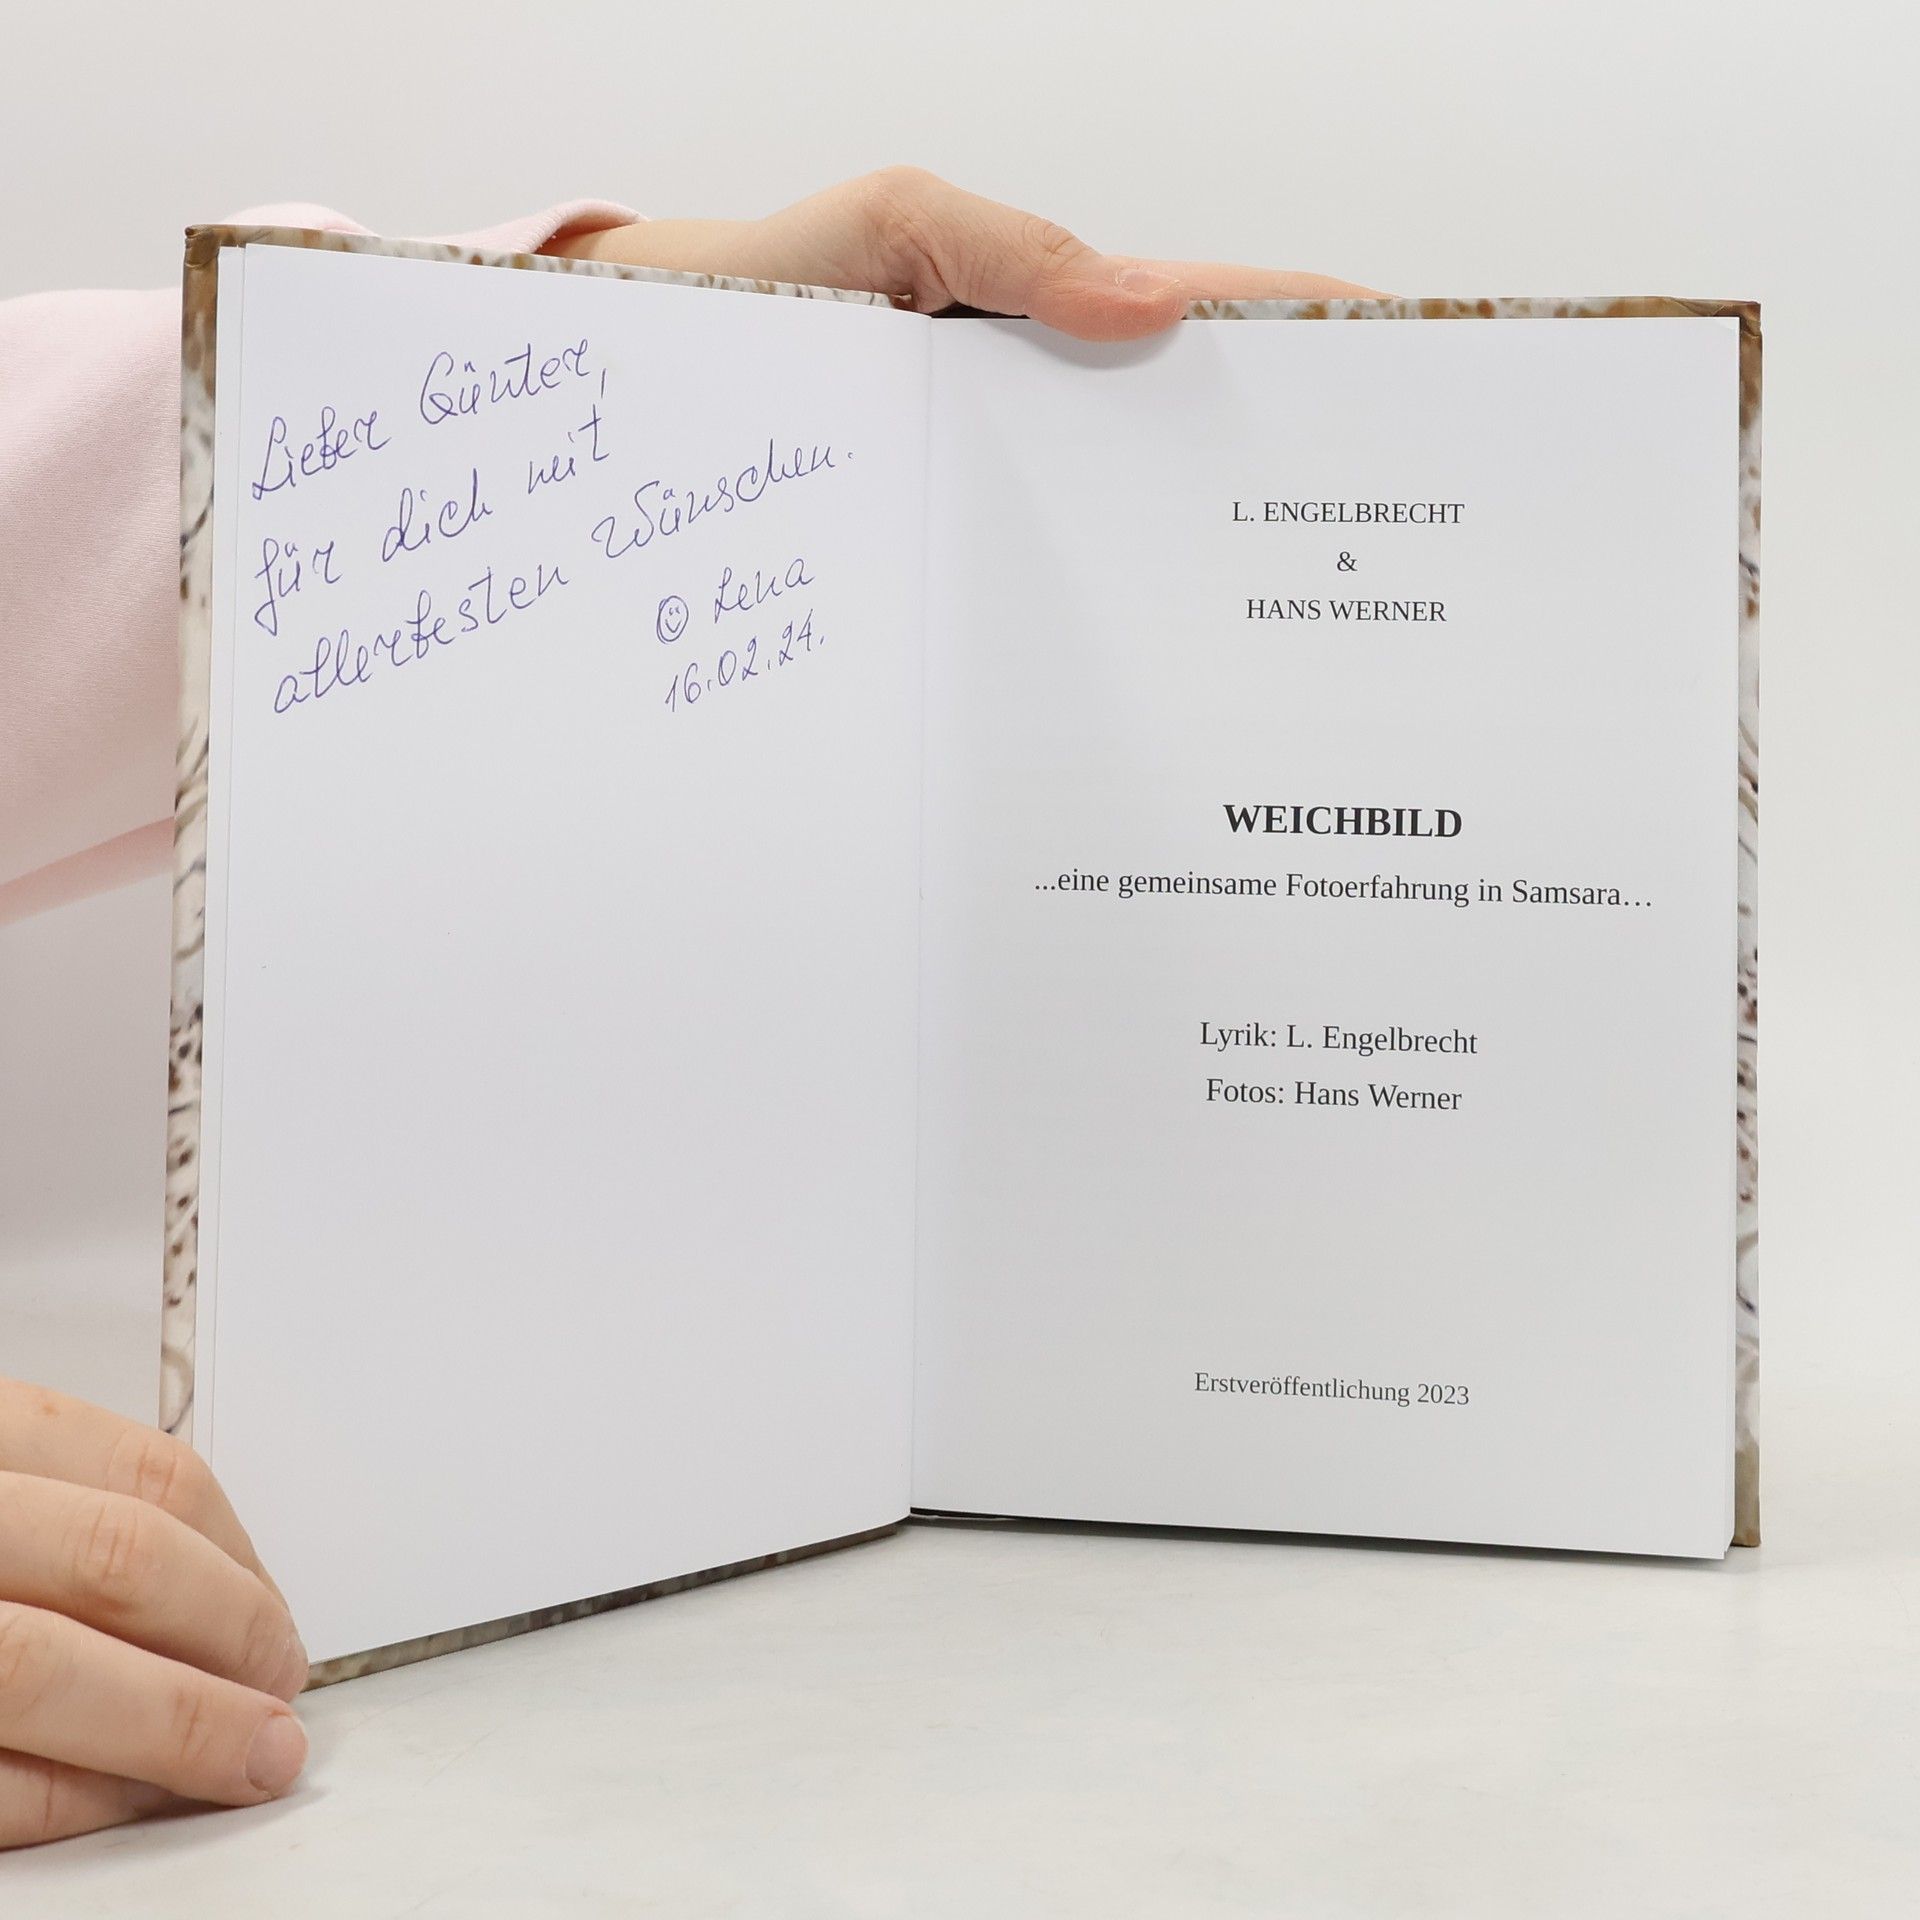 Lieber Günter,
für dich mit
allerbesten Wünschen.
☺ Lena
16.02.24.
L. ENGELBRECHT
&
HANS WERNER
WEICHBILD
...eine gemeinsame Fotoerfahrung in Samsara…
Lyrik: L. Engelbrecht
Fotos: Hans Werner
Erstveröffentlichung 2023